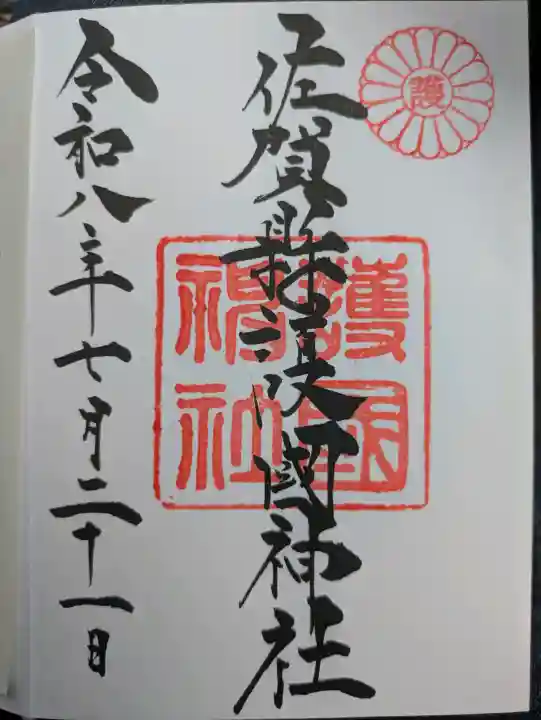 護
佐賀縣護國神社
護國
神社
令和八年七月二十一日